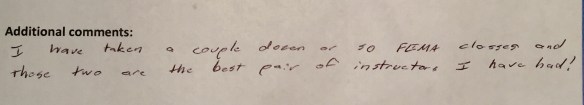 Additional comments:
I have taken a couple dozen or so FEMA classes and
those two are the best pair of instructors I have had!